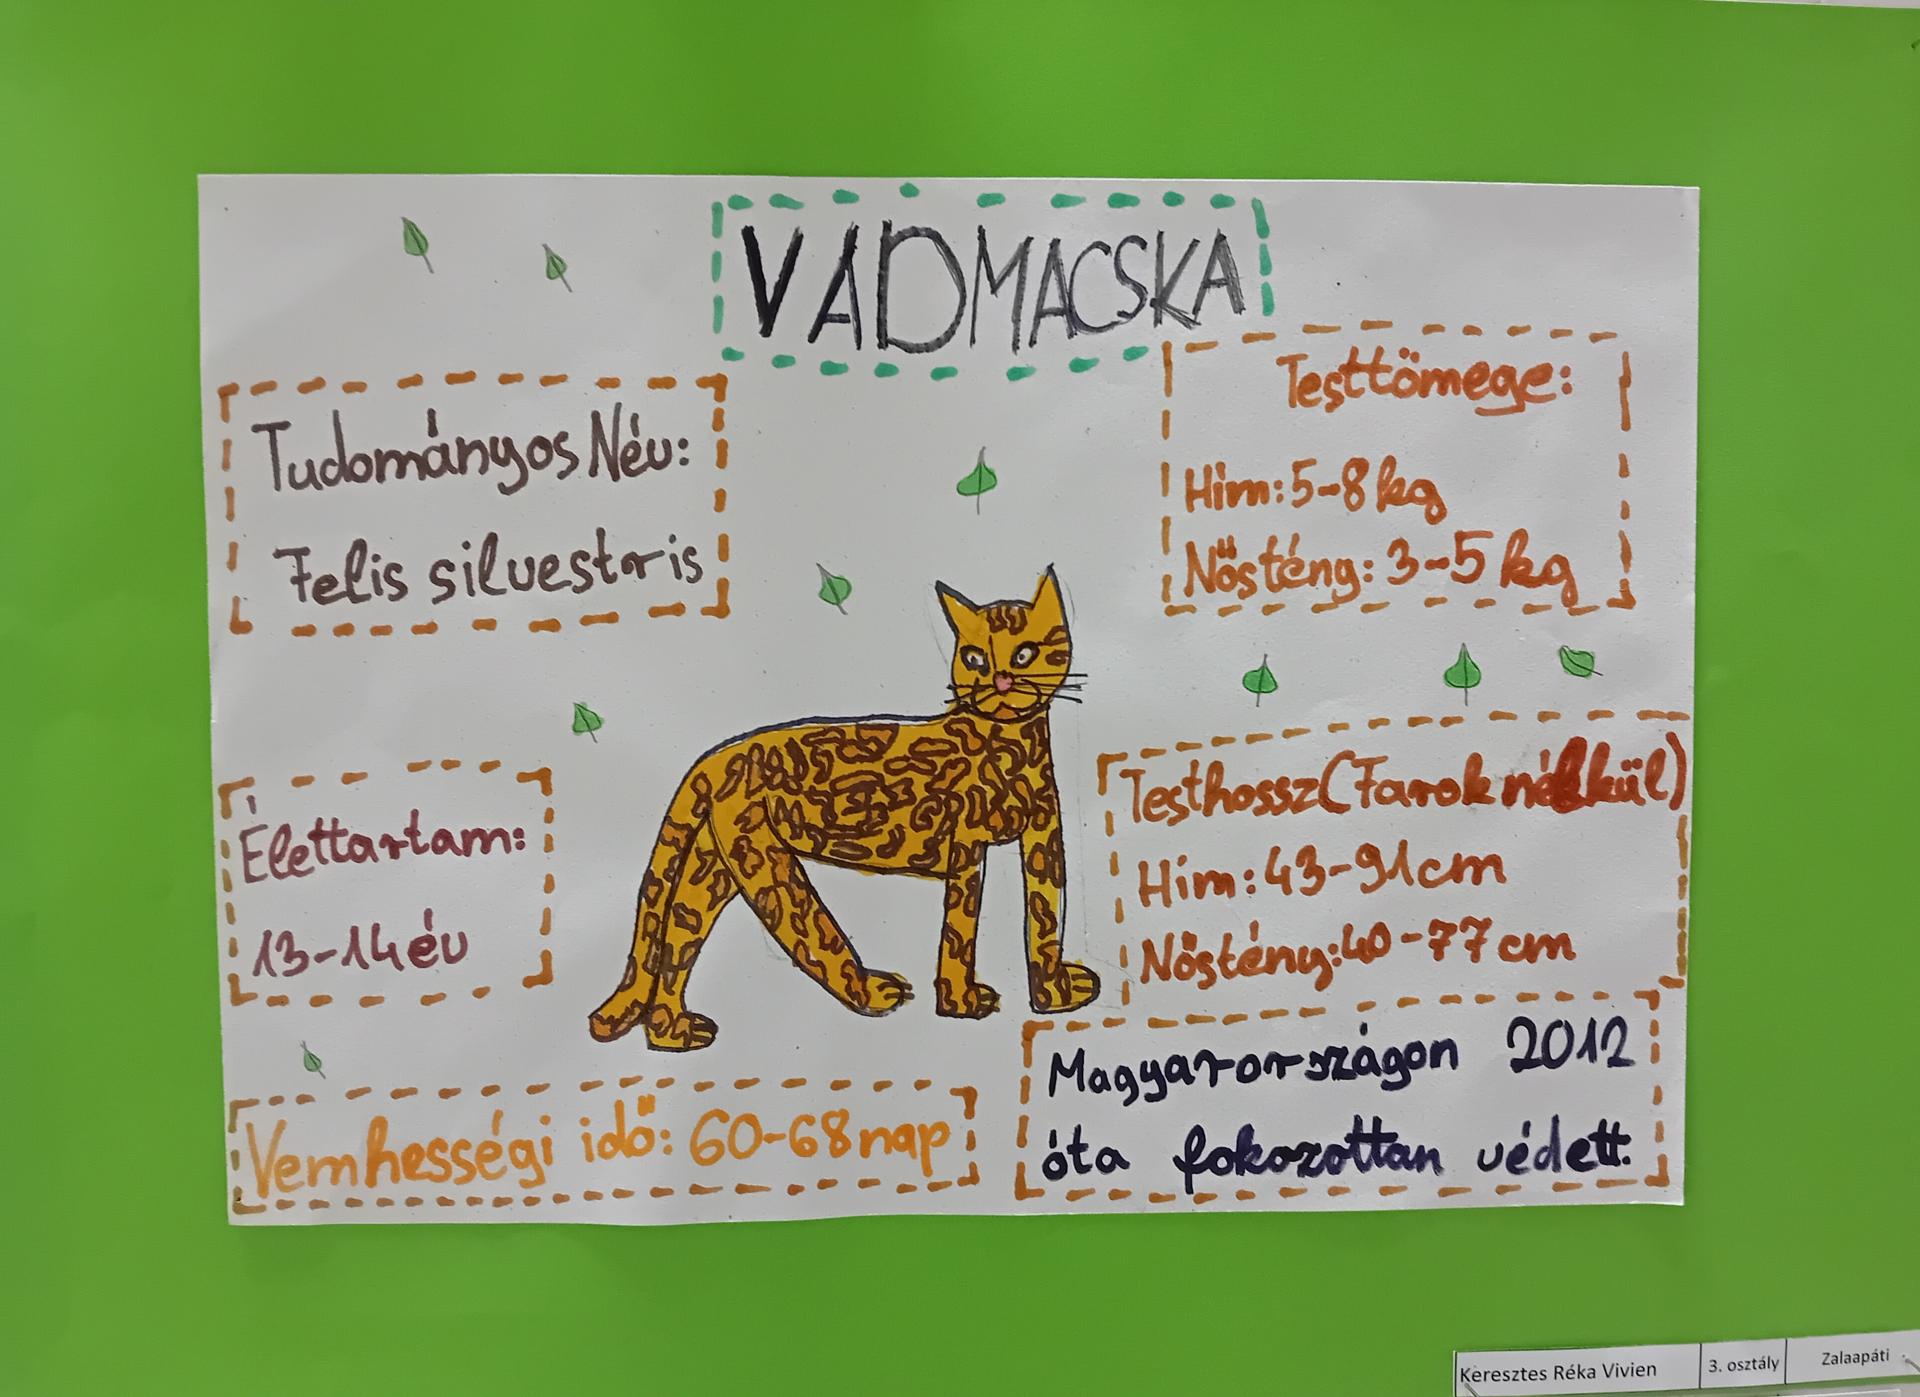 VADMACSKA
Tudományos Név:
Felis silvestris
Testtömege:
Hím: 5-8 kg
Nőstény: 3-5 kg
Élettartam:
13-14 év
Testhossz (Farok nélkül)
Hím: 43-91 cm
Nőstény: 40-77 cm
Vemhességi idő: 60-68 nap
Magyarországon 2012
óta fokozottan védett.
Keresztes Réka Vivien 3. osztály Zalaapáti